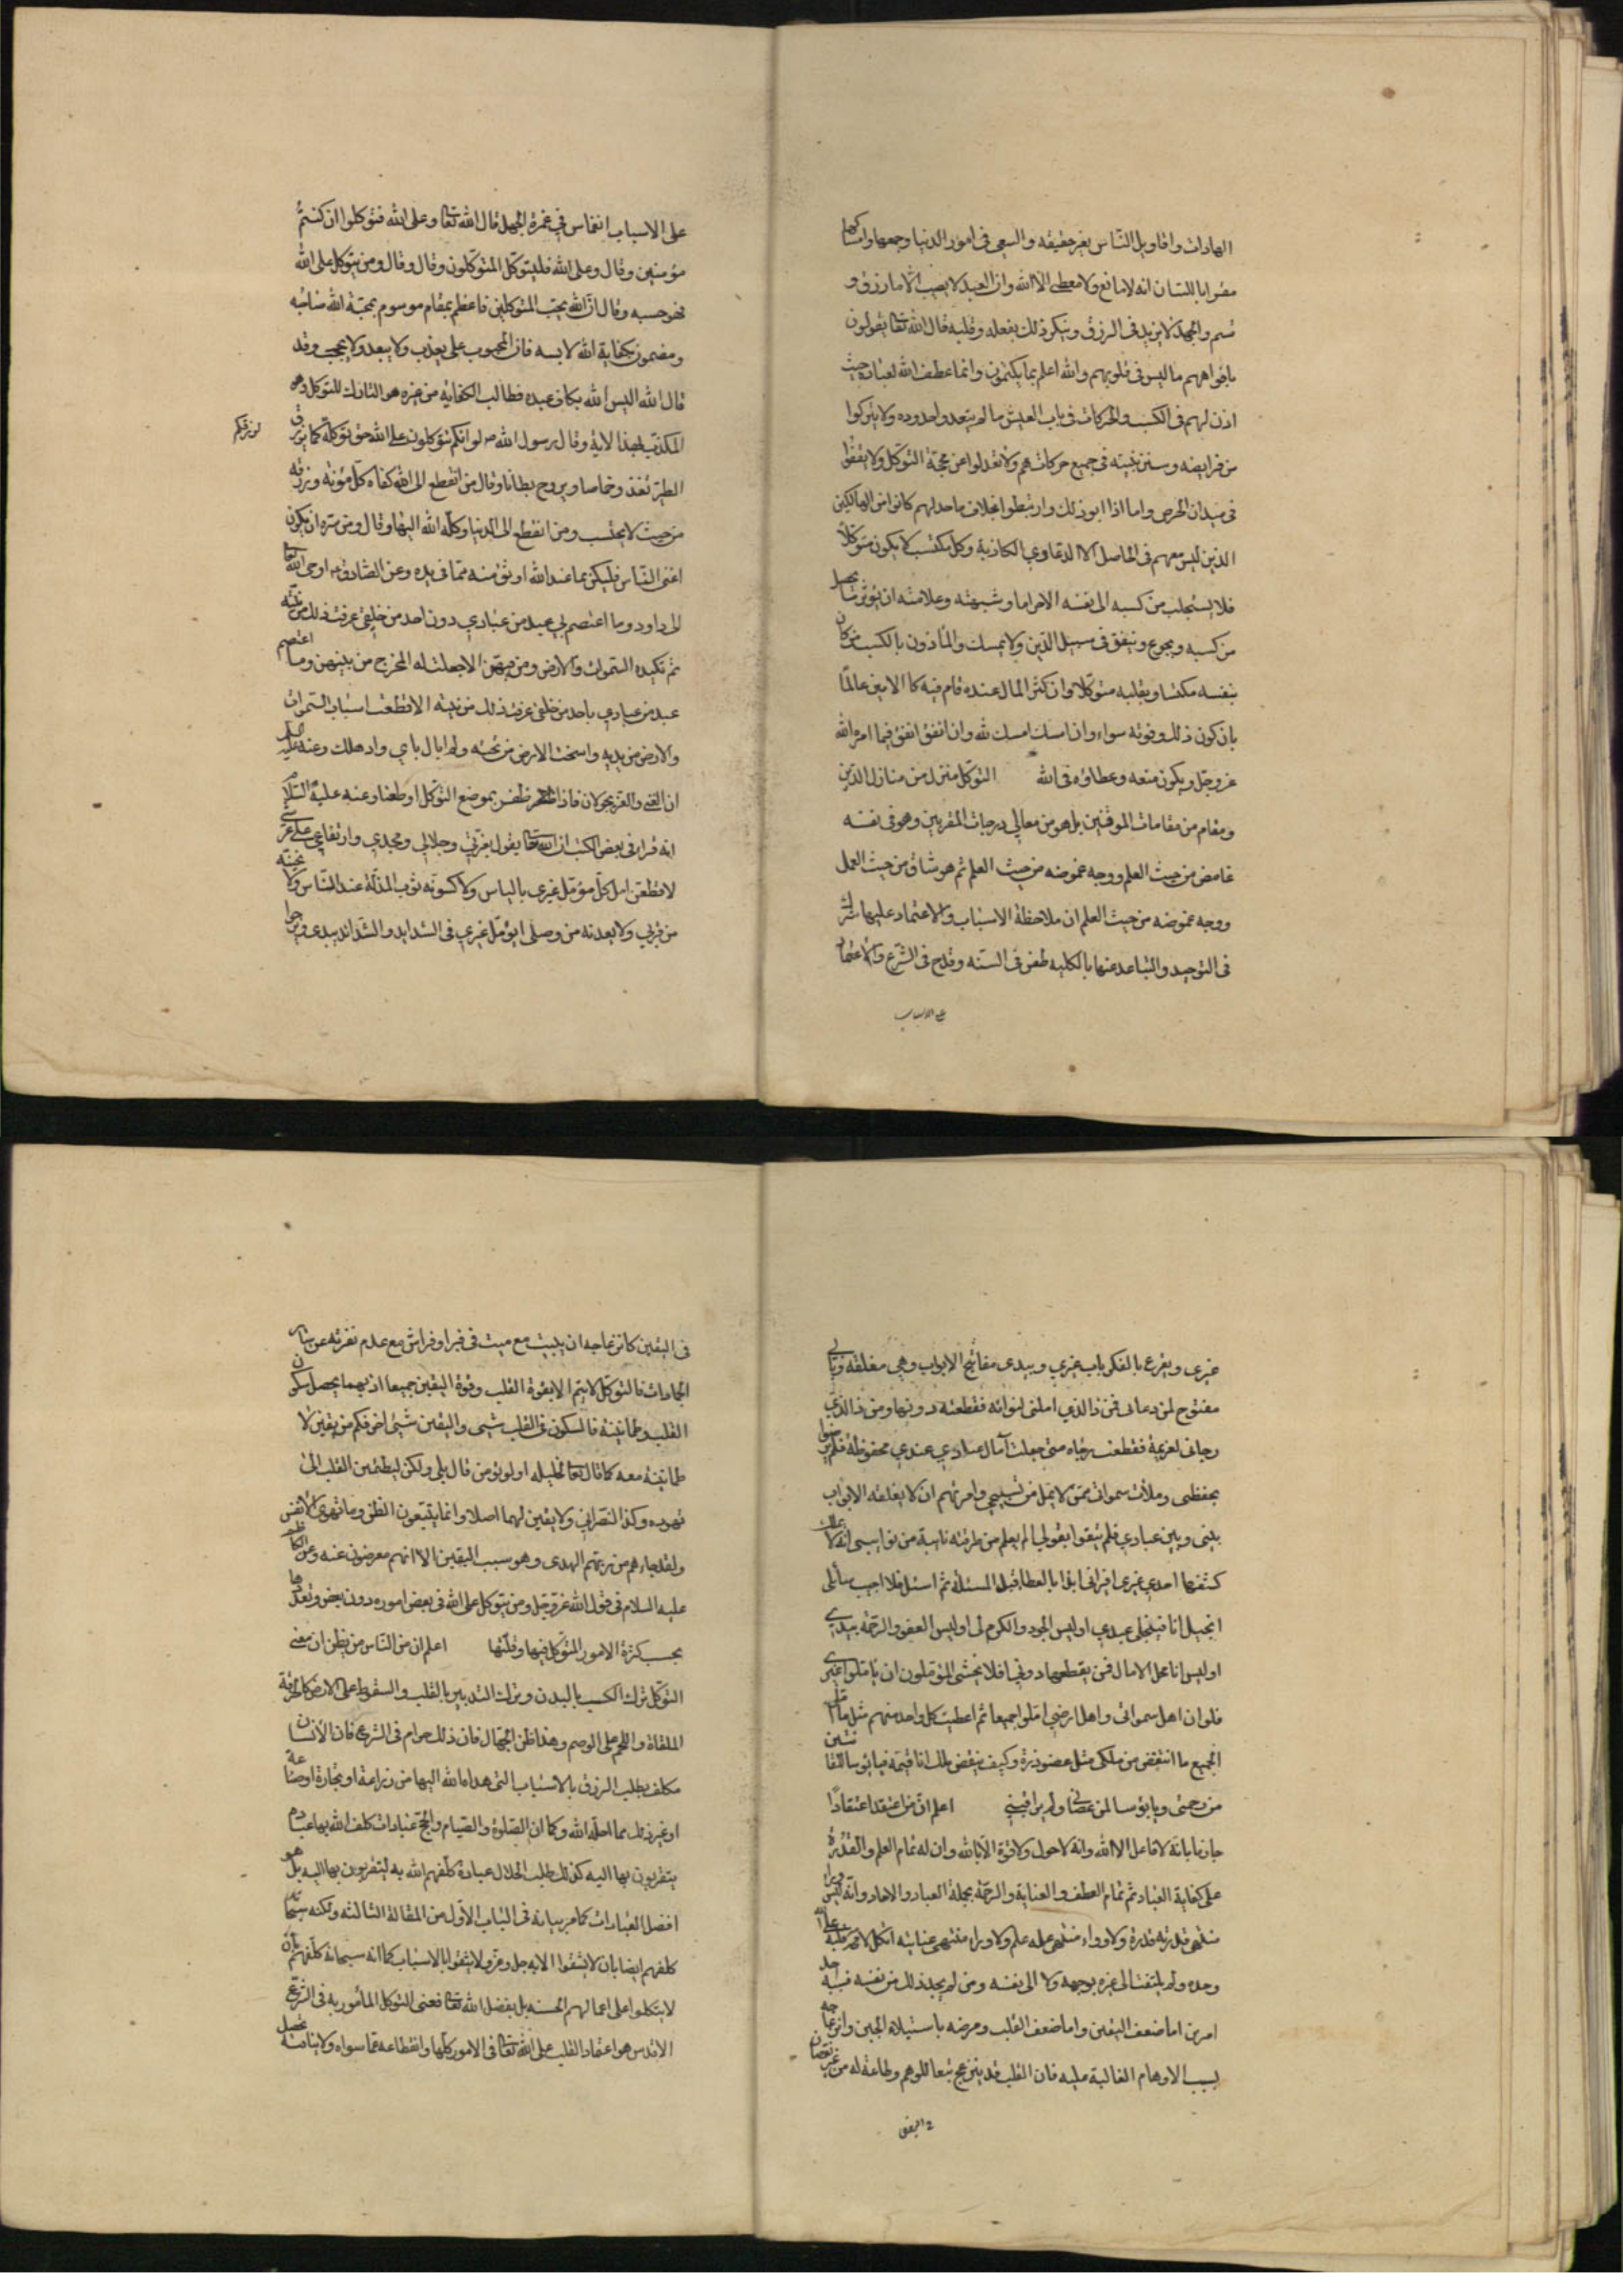 العادات واقاويل الناس بغير حقيقه والسعى فى امور الدنيا وجمعها وامساكها
مقرا باللسان انه لا مانع ولا معطى الا الله وان العبد لا يصيب الا ما رزق و
قسم والجهد لا يزيد فى الرزق وينكر ذلك بفعله وقلبه قال الله تعا يقولون
بافواههم ما ليس فى قلوبهم والله اعلم بما يكتمون وانما عطف الله لعباده حيث
اذن لهم فى الكسب والحركات فى باب العيش ما لم يتعدوا حدوده ولا يتركوا
من فرايضه وسنن نبيه فى جميع حركاتهم ولا تعدلوا عن محجة التوكل ولا يقفوا
فى ميدان الحرص واما اذا ابوا ذلك وارتبطوا بخلاف ما حد لهم كانوا من الهالكين
الذين ليس معهم فى الحاصل الا الدعاوى الكاذبة وكل مكتسب لا يكون متوكلا
فلا يستجلب من كسبه الى نفسه الا حراما وشبهته وعلامته ان يؤثر ما يحصل
من كسبه ويجوع وينفق فى سبيل الدين ولا يمسك والماذون بالكسب من كان
بنفسه مكتسبا وبقلبه متوكلا وان كثر المال عنده قام فيه كالامين عالما
بان كون ذلك وفوته سواء وان امسك امسك لله وان انفق انفق فيما امره الله
عز وجل ويكون منعه وعطاؤه فى الله التوكل منزل من منازل الدين
ومقام من مقامات الموقنين بل هو من معالى درجات المقربين وهو فى نفسه
غامض من حيث العلم ووجه غموضه من حيث العلم ثم هو شاق من حيث العمل
ووجه غموضه من حيث العلم ان ملاحظة الاسباب والاعتماد عليها شرك
فى التوحيد والتباعد عنها بالكليه طعن فى السنه وقدح فى الشرع والاعتماد
على الاسباب
على الاسباب انغماس فى غمرة الجهل قال الله تعا وعلى الله فتوكلوا ان كنتم
مؤمنين وقال وعلى الله فليتوكل المتوكلون وقال وقال ومن يتوكل على الله
فهو حسبه وقال ان الله يحب المتوكلين فاعظم بمقام موسوم بمحبة الله صاحبه
ومضمون كفاية الله لابسه فان المحبوب على يعذب ولا يبعد ولا يحجب وقد
قال الله اليس الله بكاف عبده فطالب الكفاية من غيره هو التارك للتوكل وهو
المكذب لهذا الاية وقال رسول الله ص لو انكم تتوكلون على الله حق توكله كما يرزق
لرزقكم
الطير تغذو خماصا ويروح بطانا وقال من انقطع الى الله كفاه كل مؤنة ورزقه
من حيث لا يحتسب ومن انقطع الى الدنيا وكله الله اليها وقال ومن سره ان يكون
اغنى الناس فليكن بما عند الله اوثق منه مما فى يده وعن الصادق ع اوحى الله تعا
الى داود وما اعتصم بى عبد من عبادى دون احد من خلقى عرفت ذلك من نيته
ثم تكيده السموات والارض ومن فيهن الا جعلت له المخرج من بينهن وما اعتصم
عبد من عبادى باحد من خلقى عرفت ذلك من نيته الا قطعت اسباب السموات
والارض من يديه واسخت الارض من تحته ولم ابال باى واد هلك وعنه عليه السلم
ان الغنى والعز يجولان فاذا ظفر بموضع التوكل اوطنا وعنه عليه السلام
انه قرا فى بعض الكتب ان الله تعا يقول بعزتى وجلالى ومجدى وارتفاعى على عرشى
لاقطعن امل كل مؤمل غيرى بالياس ولاكسونه ثوب المذلة عند الناس ولانحينه
من قربى ولابعدنه من وصلى ايؤمل غيرى فى الشدايد والشدايد بيدى ويرجوا
غيرى ويقرع بالفكر باب غيرى وبيدى مفاتيح الابواب وهى مغلقه وبابى
مفتوح لمن دعانى فمن ذا الذى املنى لنوائبه فقطعته دونها ومن ذا الذى
رجانى لعزيمة فقطعت رجاه منى جعلت آمال عبادى عندى محفوظة فلم يرضوا
بحفظى وملأت سمواتى ممن لا يمل من تسبيحى وامرتهم ان لا يغلقه الابواب
بينى وبين عبادى فلم يثقوا بقولى الم يعلم من طرقته نايبة من نوايبى انه لا يملك
كشفها احد غيرى افيرانى ابدا بالعطا قبل المسئلة ثم اسئل فلا اجيب سائلى
ابخيل انا فيبخلنى عبدى اوليس الجود والكرم لى اوليس العفو والرحمة بيدى
اوليس انا محل الامال فمن يقطعها دونى افلا يخشى المؤملون ان ياملوا غيرى
فلو ان اهل سمواتى واهل ارضى املوا جميعا ثم اعطيت كل واحد منهم مثل ما امل
الجميع ما انتقض من ملكى مثل عضو ذرة وكيف ينقض ملك انا قيمه فيا بوسا للقانتين
من رحمتى ويا بؤسا لمن عصانى ولم يراقبنى اعلم ان من اعتقد اعتقادا
جازما بانه لا فاعل الا الله وانه لا حول ولا قوة الا بالله وان له تمام العلم والقدرة
على كفاية العباد ثم تمام العطف والعناية والرحمة بجملة العباد والاحاد وانه ليس وراء
منتهى قدرته قدرة ولا وراء منتهى علمه علم ولا وراء منتهى عنايته اتكل لا محه قلبه على الله
وحده ولم يلتفت الى غيره بوجه ولا الى نفسه ومن لم يجد ذلك من نفسه فسببه احد
امرين اما ضعف اليقين واما ضعف القلب ومرضه باستيلاء الجبن وانزعاجه
بسبب الاوهام الغالبة عليه فان القلب قد ينزعج تبعا للوهم وطاعة له من غير نقصان
فى اليقين
فى اليقين كانزعاجه ان يبيت مع ميت فى قبر او فراش مع عدم نفرته عن سائر
الجمادات فالتوكل لا يتم الا بقوة القلب وقوة اليقين جميعا اذ بهما يحصل سكون
القلب وطمانينة فالسكون فى القلب شىء واليقين شىء اخر فكم من يقين لا
طمانينة معه كما قال تعا لخليله اولم تؤمن قال بلى ولكن ليطمئن القلب الى
تهوده وكذا النصرانى ولا يقين لهما اصلا وانما يتبعون الظن وما تهوى الانفس
ولقد جاءهم من ربهم الهدى وهو سبب اليقين الا انهم معرضون عنه وعن الكاظم
عليه السلام فى قول الله عز وجل ومن يتوكل على الله فى بعض اموره دون بعض وتعددها
بحسب كثرة الامور المتوكل فيها وقلتها اعلم ان من الناس من يظن ان معنى
التوكل ترك الكسب بالبدن وترك التدبير بالقلب والسقوط على الارض كالخرقة
الملقاة واللحم على الوضم وهذا ظن الجهال فان ذلك حرام فى الشرع فان الانسان
مكلف بطلب الرزق بالاسباب التى هداه الله اليها من زراعة او تجارة او صناعة
او غير ذلك مما احله الله وكما ان الصلوة والصيام والحج عبادات كلف الله بها عباده
يتقربون بها اليه كذلك طلب الحلال عبادة كلفهم الله به ليتقربون بها اليه بل هو
افضل العبادات كما مر بيانه فى الباب الاول من المقالة الثالثه ولكنه سبحانه
كلفهم ايضا بان لا يثقوا الا به جل وعز ولا يثقوا بالاسباب كما انه سبحانه كلفهم بان
لا يتكلوا على اعمالهم الحسنه بل بفضل الله تعا فمعنى التوكل المأمور به فى الشرع
الاقدس هو اعتماد القلب على الله تعا فى الامور كلها وانقطاعه عما سواه ولا ينافيه تحصيل